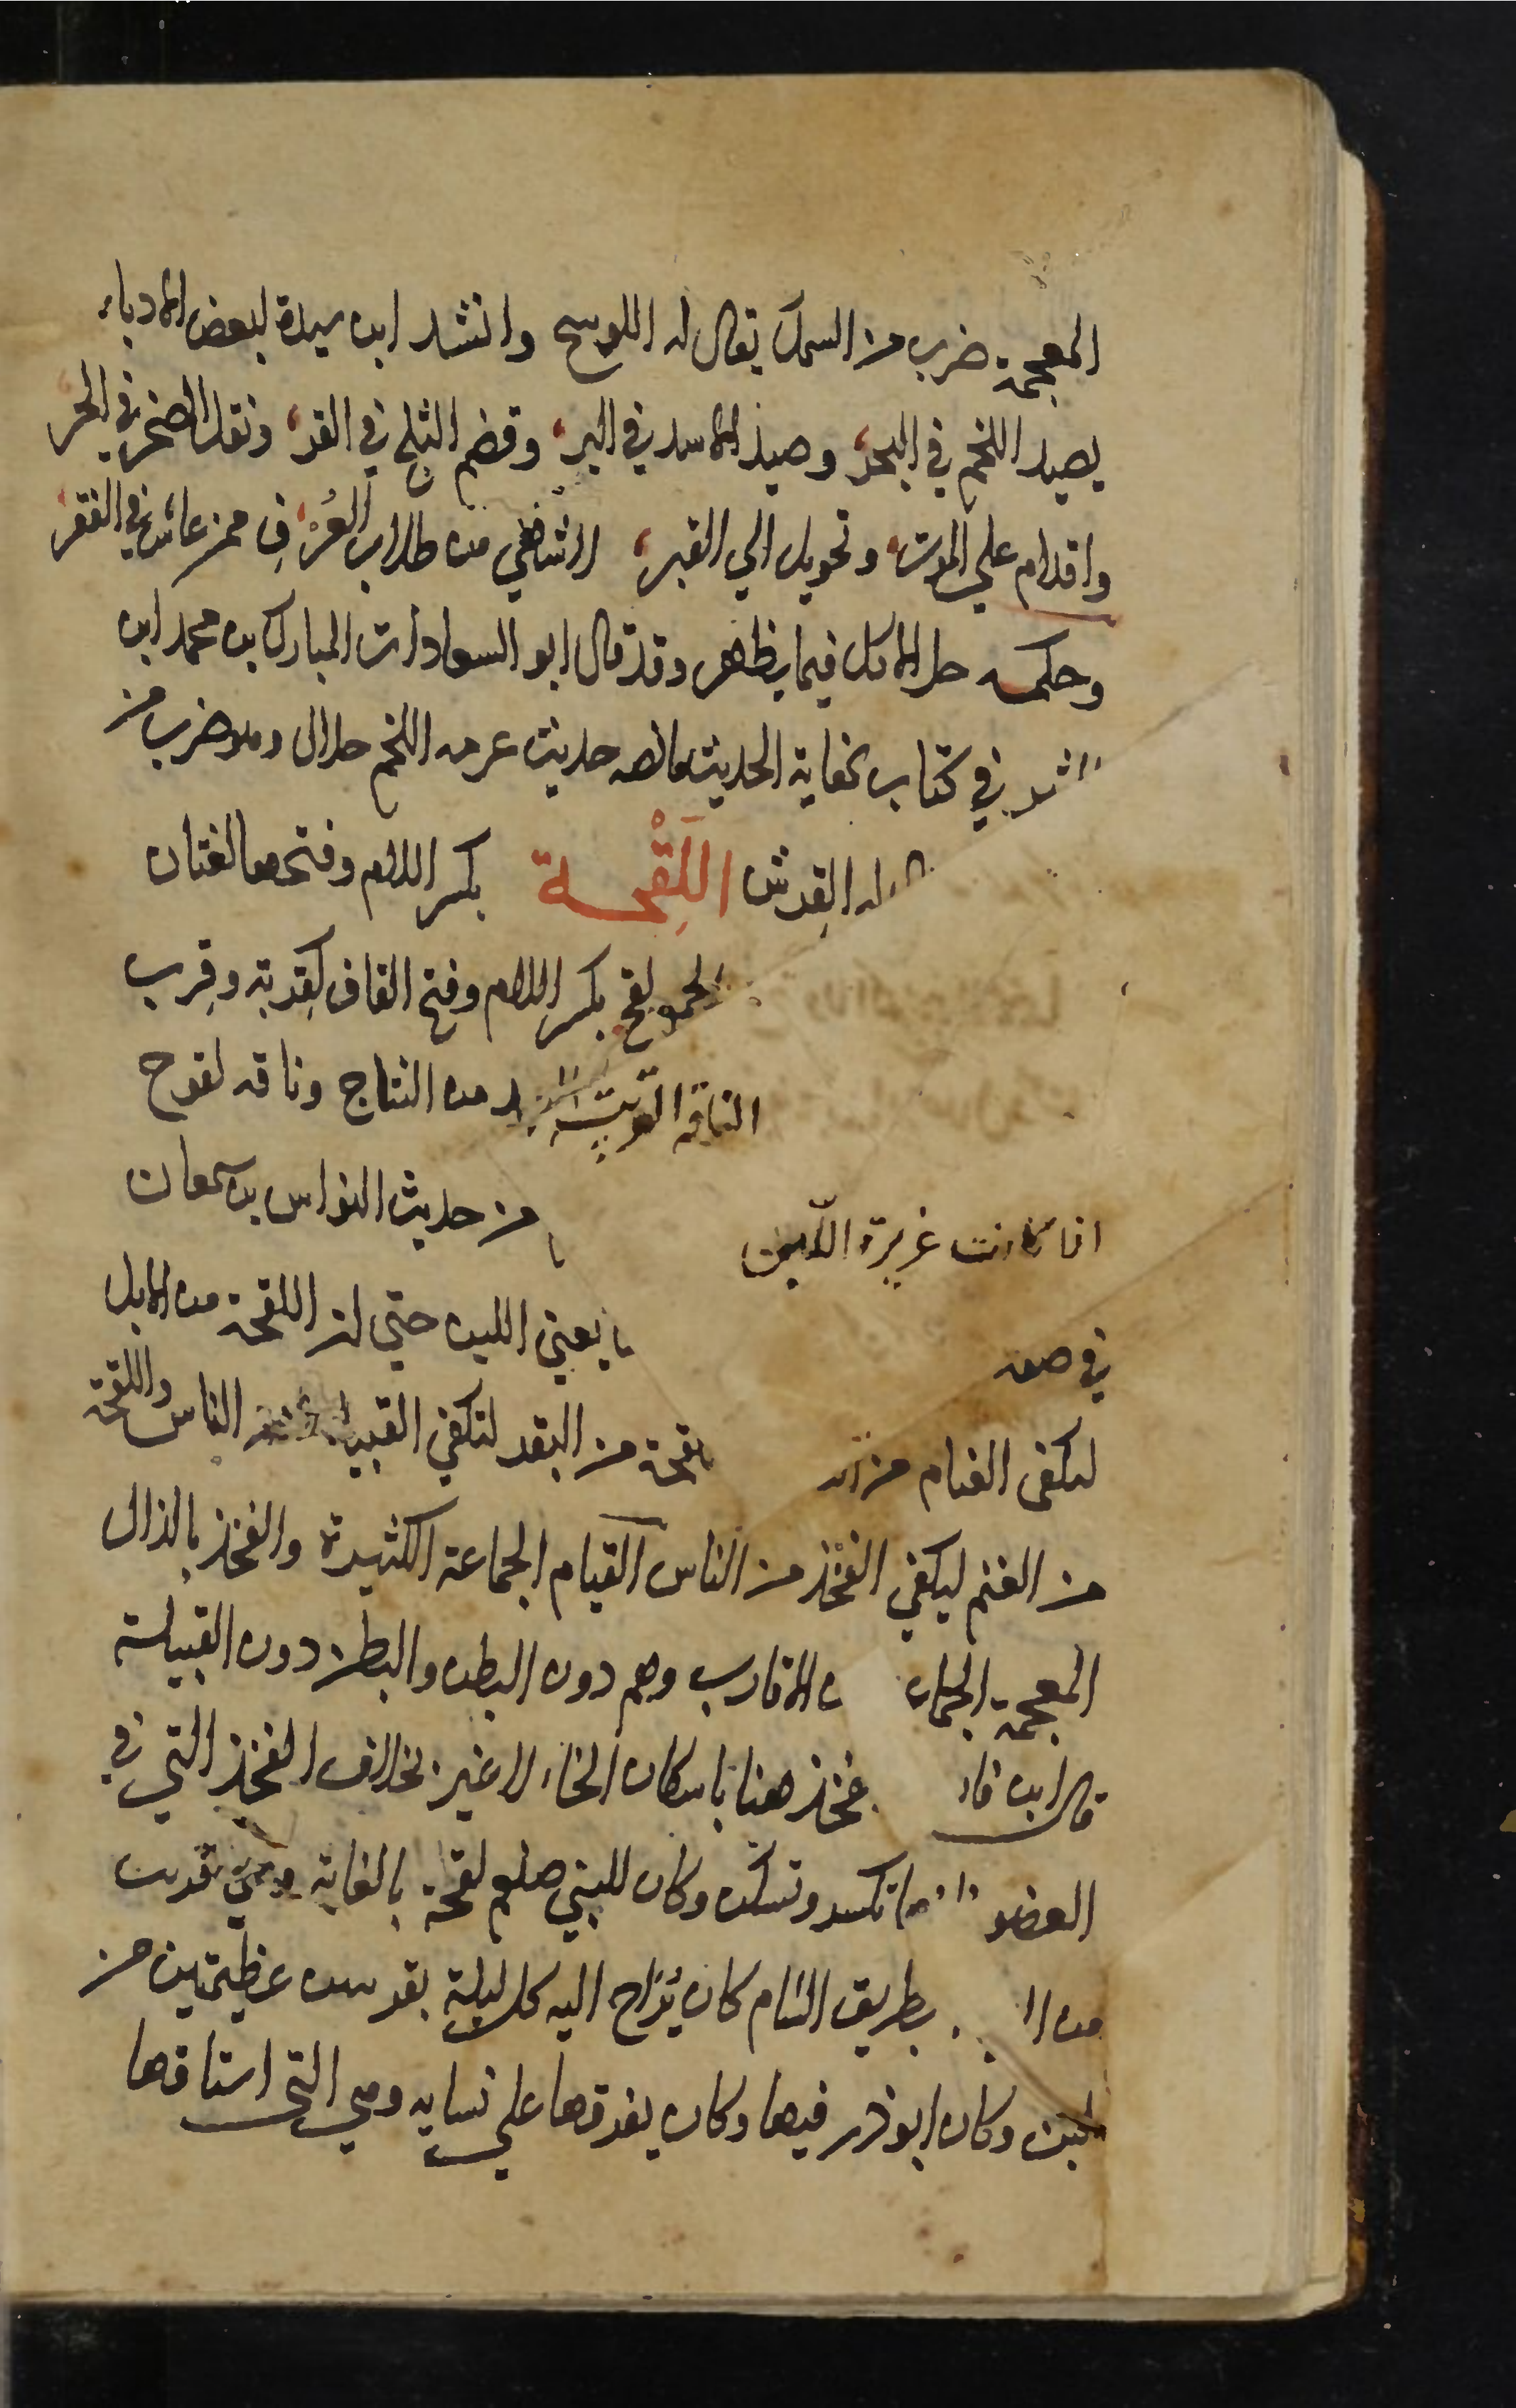 المعجمة ضرب من السمك يقال له اللوسج وانشد ابن سيدة لبعض الادباء
بصيد اللخم في البحر وصيد الاسد في البر وقضم الثلج في القر ونقل الصخر في الحر
واقدام على الموت وتحويل الي القبر لاشهي من طلاب العز في من عاش في الفقر
وحكمه حل الاكل فيما يظهر وقد قال ابو السعادات المبارك بن محمد ابن
في كتاب نهاية الحديث حديث عكرمه اللخم حلال وهو ضرب من
له القرش اللقحة بكسر اللام وفتحها لغتان
لقح بكسر اللام وفتح القاف كقربة وقرب
الناقة القريبة العهد من النتاج وناقه لقوح
اذا كانت غزيرة اللبن من حديث النواس بن سمعان
في صفه يعني اللبن حتي ان اللقحة من الابل
لتكفي الفئام من الناس واللقحة من البقر لتكفي القبيلة من الناس واللقحة
من الغنم ليكفي الفخذ من الناس الفيام الجماعة الكثيرة والفخذ بالذال
المعجمة الجماعة الاقارب وهم دون البطن والبطن دون القبيلة
قال ابن فارس فخذ هنا باسكان الخاء لا غير بخلاف الفخذ التي في
العضو فانها تكسر وتسكن وكان للنبي صلعم لقحة بالغابة وهي قريب
من بطريق الشام كان يُراح اليه كل ليلة بقربتين عظيمتين من
اللبن وكان ابو ذر فيها وكان يفرقها علي نسايه وهي التي استاقها